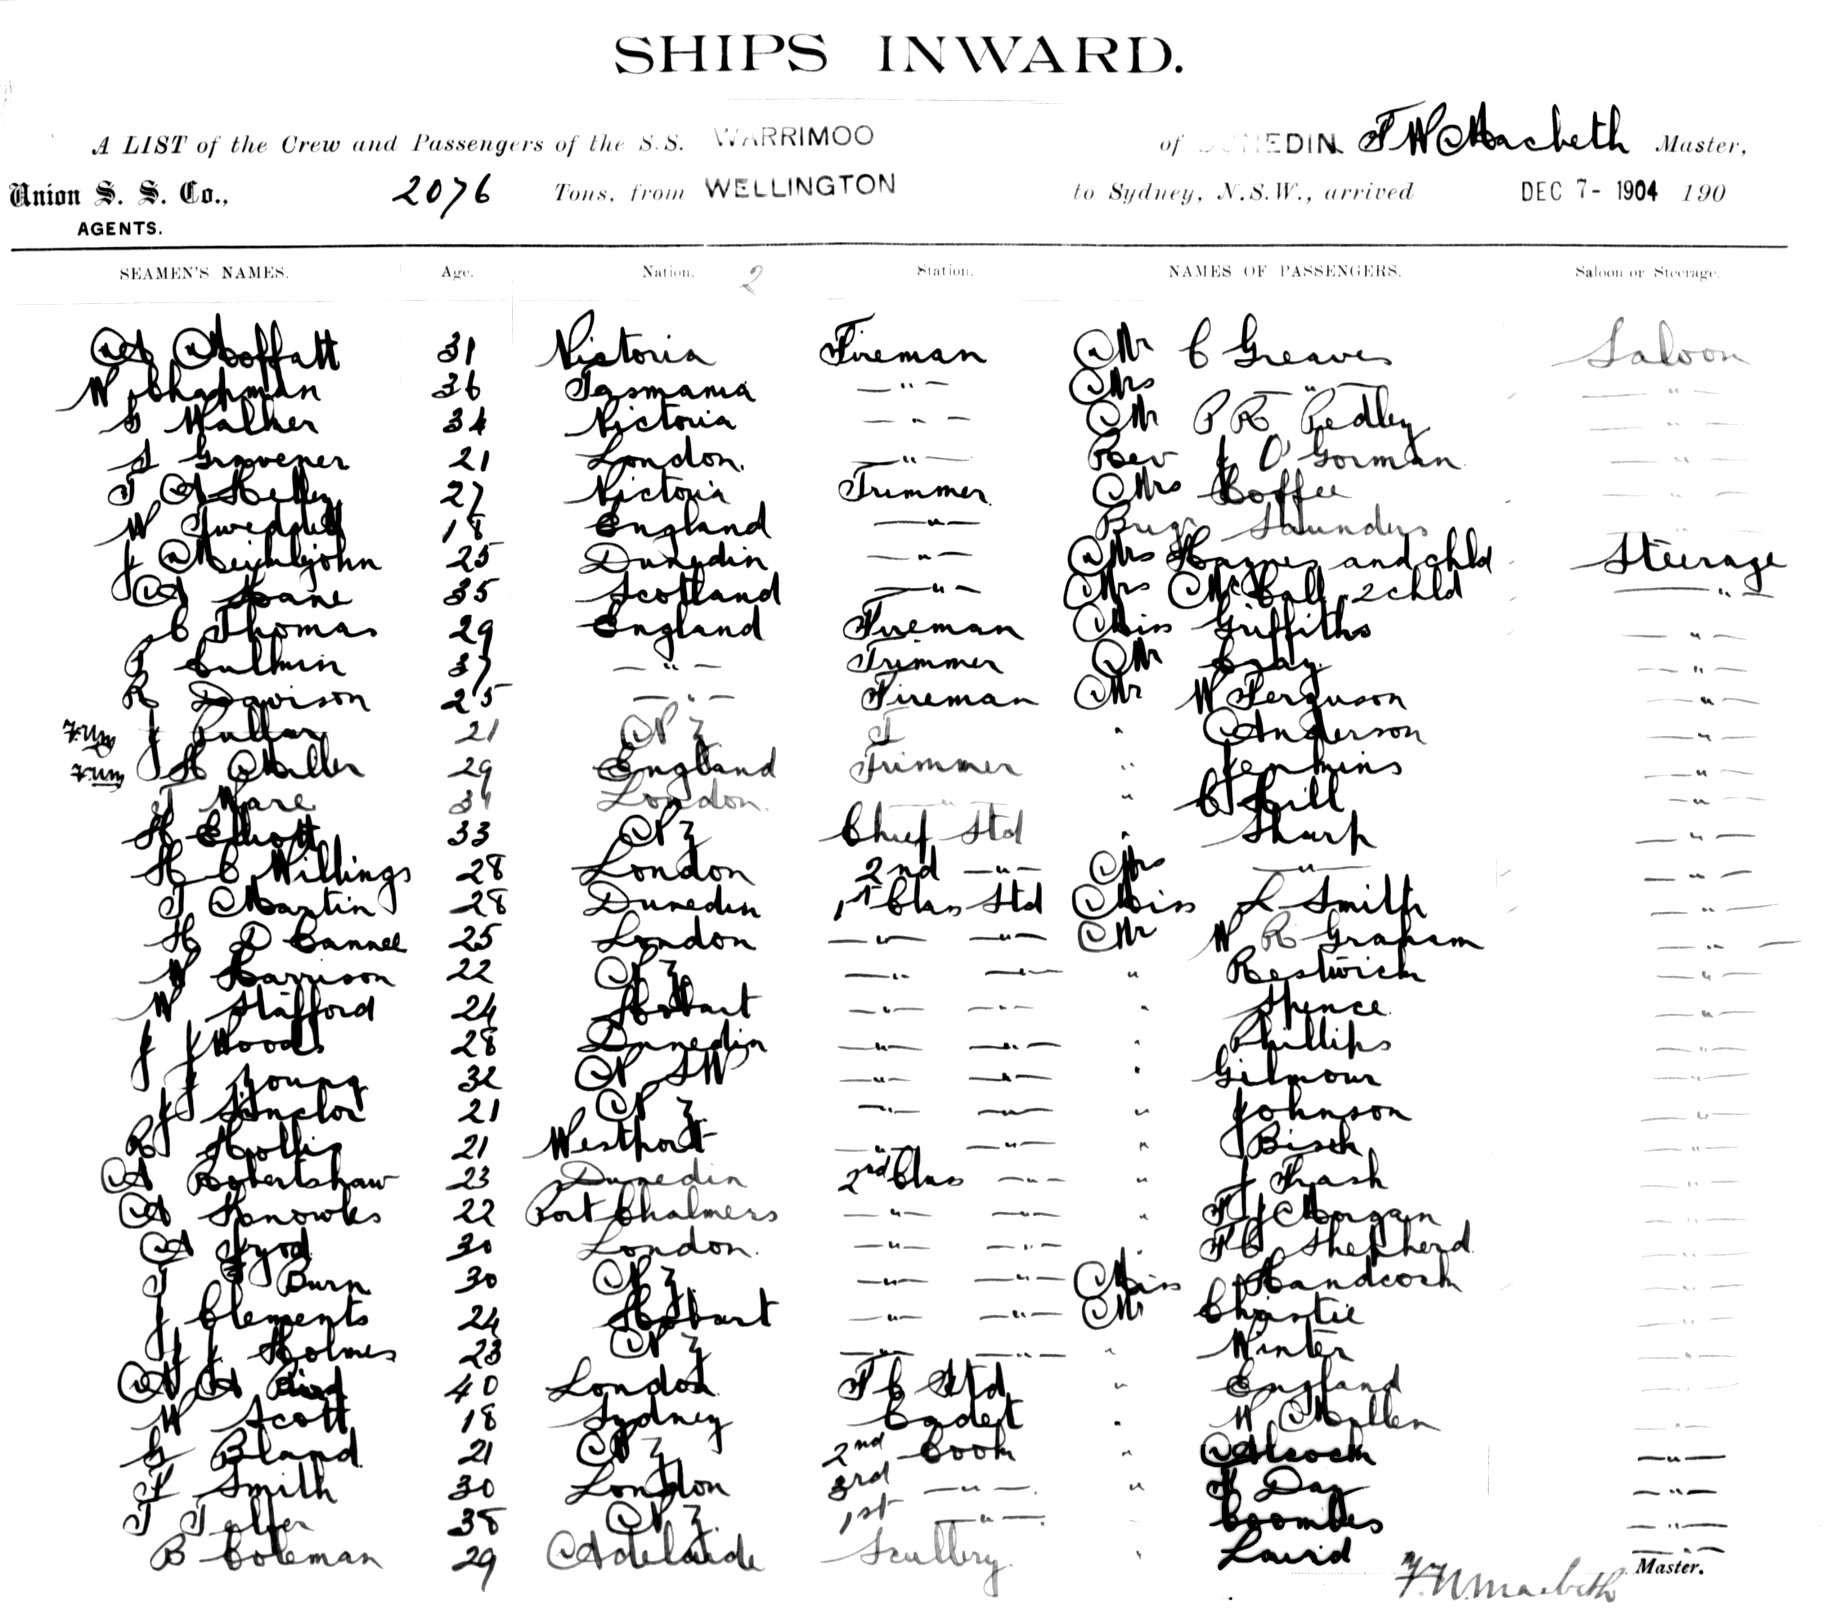 SHIPS INWARD.
A LIST of the Crew and Passengers of the S.S. WARRIMOO of DUNEDIN F W Macbeth Master,
Union S. S. Co., 2076 Tons, from WELLINGTON to Sydney, N.S.W., arrived DEC 7- 1904 190
AGENTS.
SEAMEN'S NAMES. Age. Nation. 2 Station. NAMES OF PASSENGERS. Saloon or Steerage.
A Moffatt 31 Victoria Fireman Mr C Greaves Saloon
W Chapman 36 Tasmania — " — Mrs — " — — " —
G Walker 34 Victoria — " — Mr P R Pedley — " —
S Grovener 21 London. — " — Rev J O'Gorman — " —
T A Kelly 27 Victoria Trimmer Mrs Coffee — " —
W 18 England — " — Saunders — " —
J Meiklejohn 25 Dunedin — " — Mrs Haynes and chld Steerage
A Kane 35 Scotland — " — Mrs McCall 2 chld — " —
C Thomas 29 England Fireman Miss Griffiths — " —
37 — " — Trimmer Mr — " —
R Davison 25 — " — Fireman Mr W Ferguson — " —
J Pullar 21 N Z T " Anderson — " —
H Miller 29 England Trimmer " Jenkins — " —
T Ware 31 London. — " — " C Hill — " —
H Elliott 33 N Z Chief Std " Sharp — " —
H C Willings 28 London 2nd — " — Mrs — " — — " —
T Martin 28 Dunedin 1st Class Std Miss L Smith — " —
H D Cannee 25 London — " — — " — Mr W R Graham — " —
W Harrison 22 N Z — " — — " — " Restwick — " —
W Stafford 24 Hobart — " — — " — " Spence — " —
J J Woods 28 Dunedin — " — — " — " Phillips — " —
J Young 32 N S W — " — — " — " Gilmour — " —
J Sinclor 21 N Z — " — — " — " Johnson — " —
R Hollis 21 Westport — " — — " — " — " —
A Robertshaw 23 Dunedin 2nd Class — " — " J Trash — " —
A Knowles 22 Port Chalmers — " — — " — " F J Morgan — " —
A 30 London. — " — — " — " F C Shepherd — " —
T Burn 30 N Z — " — — " — Miss Handcock — " —
J Clements 24 Hobart — " — — " — Mr Christie — " —
J J Holmes 23 N Z — " — — " — " Winter — " —
A A Bird 40 London F C Std " England — " —
W Scott 18 Sydney Cadet " W Mullen — " —
G Bland 21 N Z 2nd Cook " Alcock — " —
F Smith 30 London 3rd — " — " H Day — " —
T 38 N Z 1st — " — Coombes — " —
B Coleman 29 Adelaide Scullery. " Laird — " —
F. W. Macbeth Master.